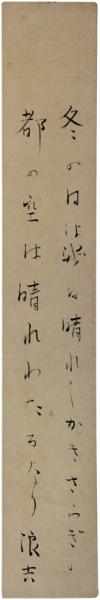 冬の日は 晴れしかきさらぎの
都の空は晴れわたるなり 浪吉